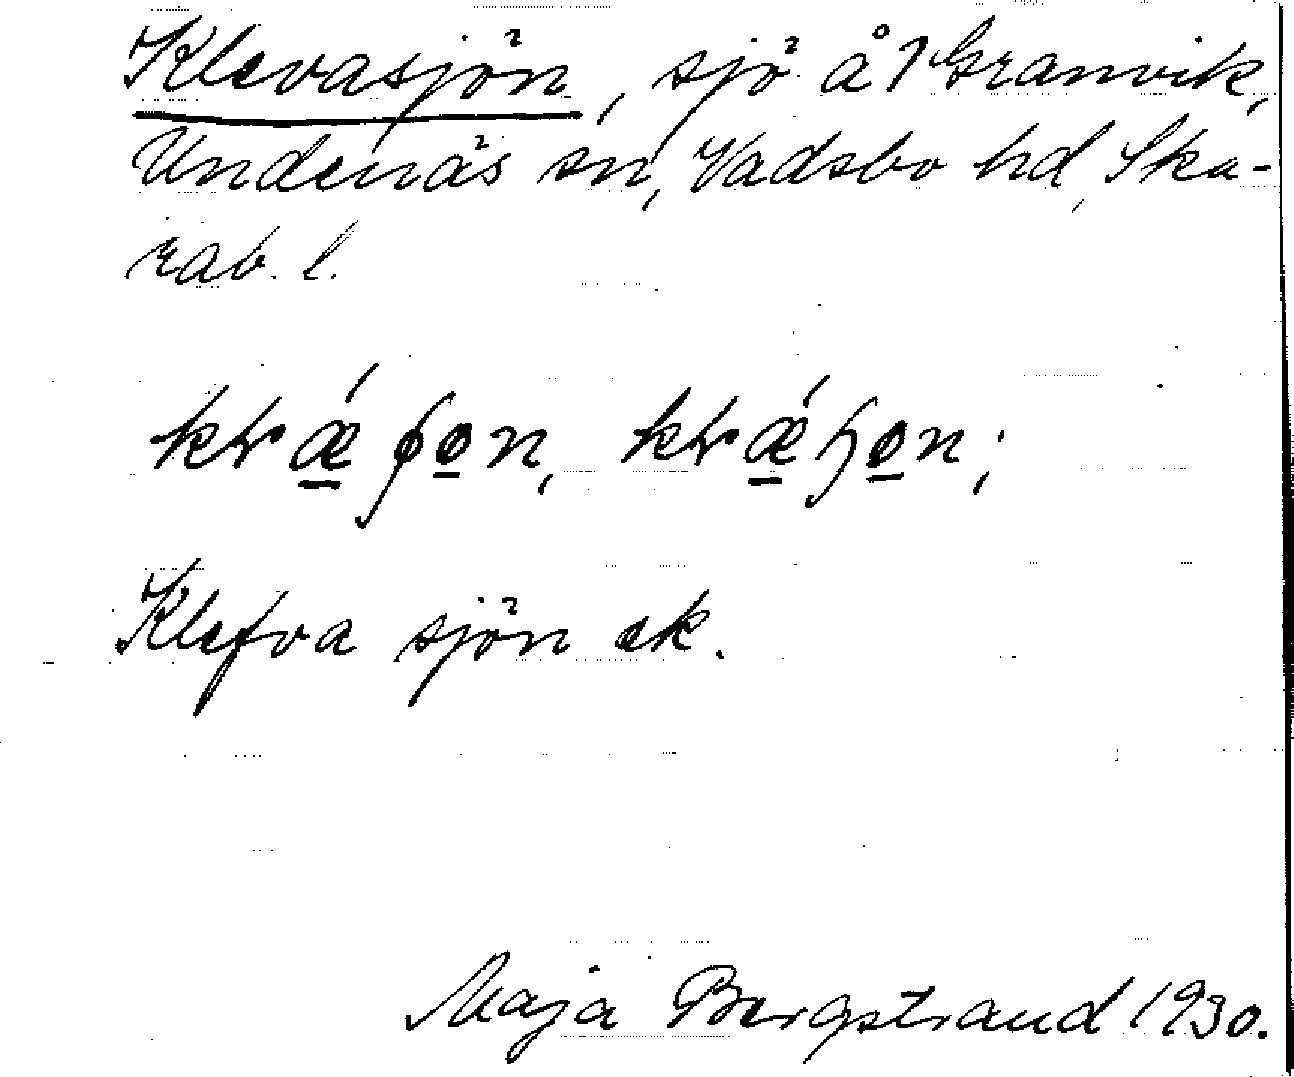 Klevasjön, sjö å 1 Granvik,
Undenäs sn, Vadsbo hd, Ska-
rab. l.
Klefva sjön ek.
Maja Bergstrand 1930.